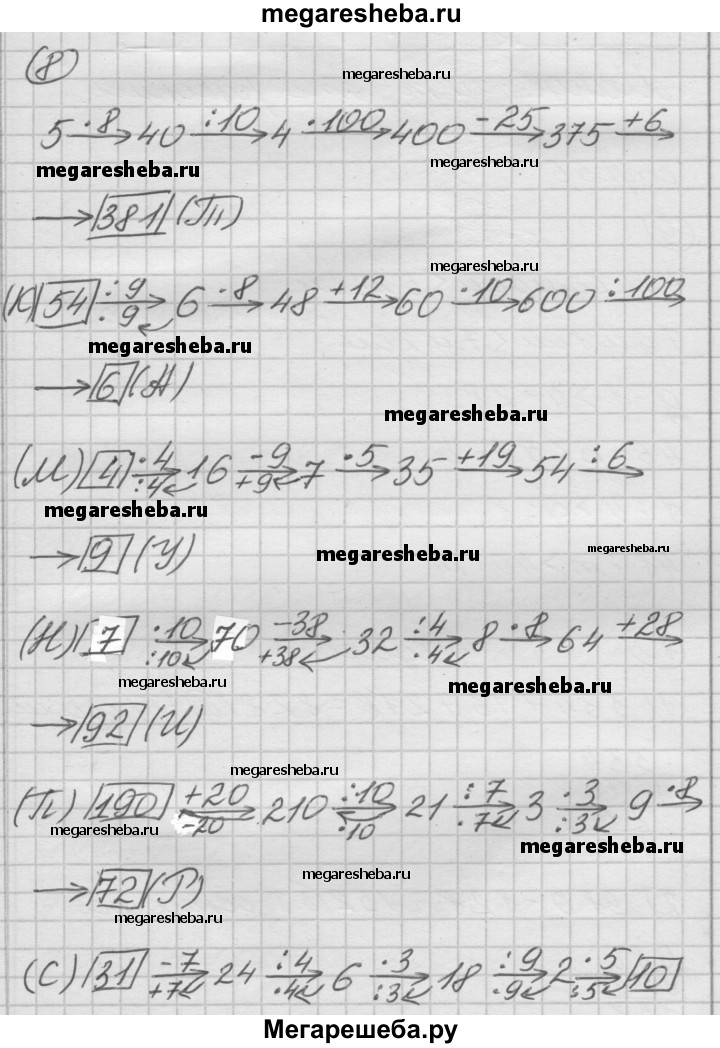 megaresheba.ru
8
megaresheba.ru
5 ·8→ 40 :10→ 4 ·100→ 400 -25→ 375 +6→
megaresheba.ru megaresheba.ru
→ 381 (П)
megaresheba.ru
(К) 54 :9→ 6 ·8→ 48 +12→ 60 ·10→ 600 :100→
·9
megaresheba.ru
→ 6 (А)
megaresheba.ru
(М) 4 ·4→ 16 -9→ 7 ·5→ 35 +19→ 54 :6→
:4 +9
megaresheba.ru
→ 9 (У)
megaresheba.ru megaresheba.ru
(Н) 7 ·10→ 70 -38→ 32 :4→ 8 ·8→ 64 +28→
:10 +38 ·4
megaresheba.ru megaresheba.ru
→ 92 (И)
megaresheba.ru
(П) 190 +20→ 210 :10→ 21 :7→ 3 ·3→ 9 ·8→
-20 ·10 ·7 :3
megaresheba.ru megaresheba.ru
→ 72 (Р)
megaresheba.ru
megaresheba.ru
(С) 31 -7→ 24 :4→ 6 ·3→ 18 :9→ 2 ·5→ 10
+7 ·4 :3 ·9 :5
Мегарешеба.ру